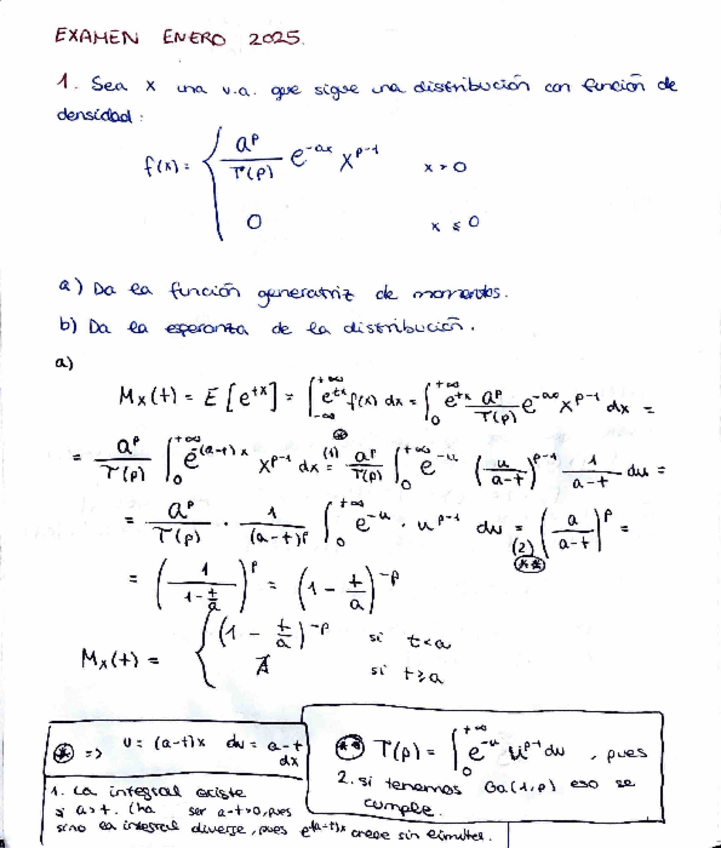 EXAMEN ENERO 2025.
1. Sea x una v.a. que sigue una distribución con función de
densidad:
f(x) = { a^p/Γ(p) e^{-ax} x^{p-1}   x > 0
0   x ≤ 0
a) Da la función generatriz de momentos.
b) Da la esperanza de la distribución.
a)
M_X(t) = E[e^{tx}] = ∫_{-∞}^{+∞} e^{tx} f(x) dx = ∫_0^{+∞} e^{tx} a^p/Γ(p) e^{-ax} x^{p-1} dx =
= a^p/Γ(p) ∫_0^{+∞} e^{-(a-t)x} x^{p-1} dx =^{⊛ (1)} a^p/Γ(p) ∫_0^{+∞} e^{-u} (u/(a-t))^{p-1} 1/(a-t) du =
= a^p/Γ(p) · 1/(a-t)^p ∫_0^{+∞} e^{-u} · u^{p-1} du =_{(2) (**)} (a/(a-t))^p =
= (1/(1 - t/a))^p = (1 - t/a)^{-p}
M_X(t) = { (1 - t/a)^{-p}   si t < a
∄   si t ≥ a
⊛ => u = (a-t)x   du = a-t dx
1. La integral existe
si a > t. (ha ser a-t > 0, pues
sino la integral diverge, pues e^{-(a-t)x} crece sin límites.
(**) Γ(p) = ∫_0^{+∞} e^{-u} u^{p-1} du, pues
2. si tenemos Ga(1,p) eso se
cumple.